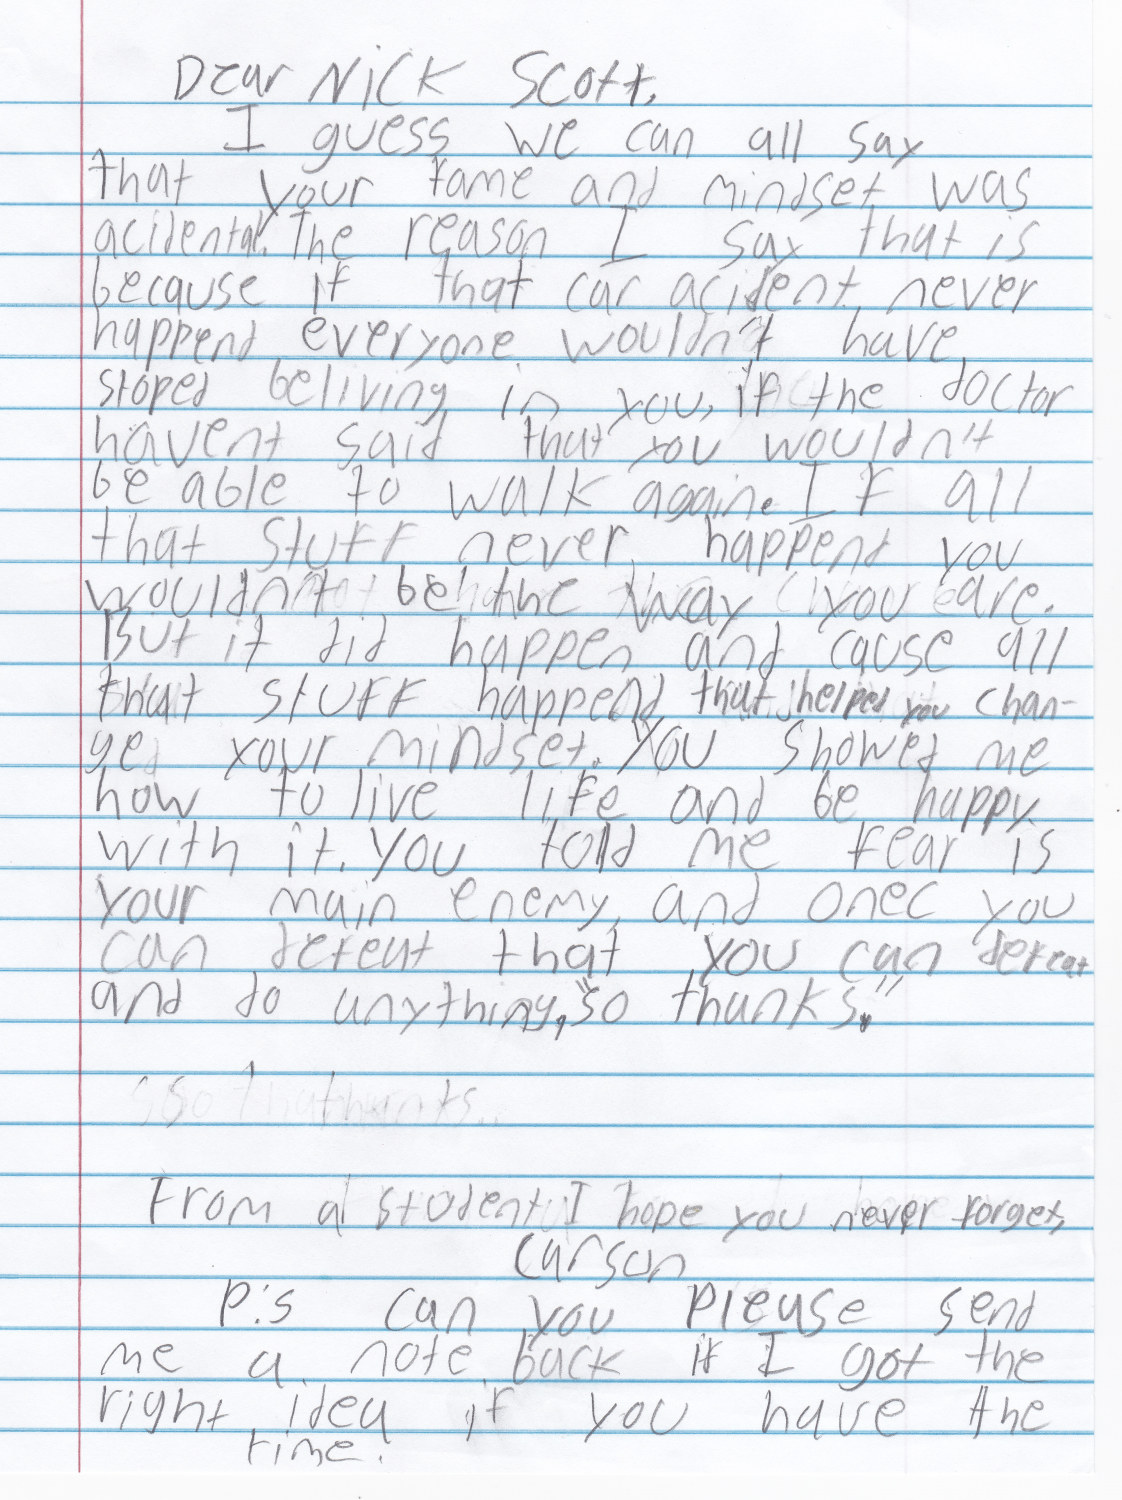 Dear Nick Scott,
I guess we can all say
that your fame and mindset was
acidental. The reason I say that is
because if that car acident never
happend everyone wouldn't have
stoped beliving in you, if the doctor
havent said that you wouldn't
be able to walk again. If all
that stuff never happend you
wouldn't be the way you are.
But it did happen and cause all
that stuff happend that helped you chan-
ge your mindset. You showed me
how to live life and be happy
with it. You told me fear is
your main enemy, and onec you
can defeat that you can defeat
and do anything, "so thanks."
From a student I hope you never forget,
Carson
P.s can you Please send
me a note back if I got the
right idea if you have the
time.